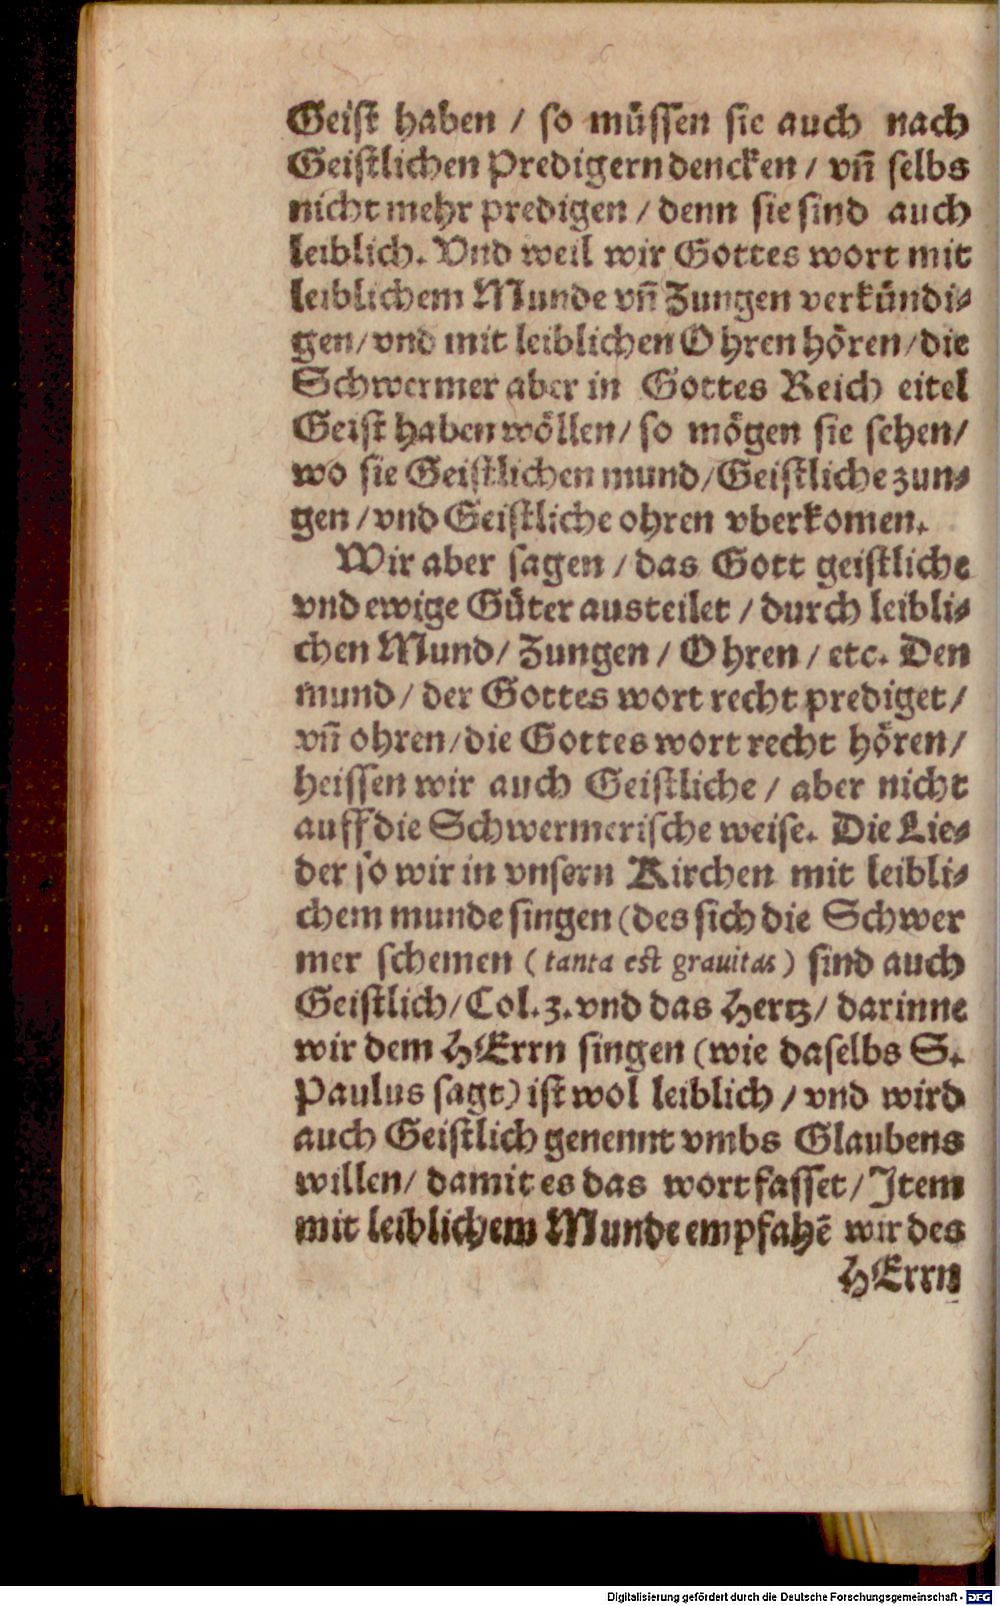 Geist haben / so müssen sie auch nach
Geistlichen Predigern dencken / vñ selbs
nicht mehr predigen / denn sie sind auch
leiblich. Vnd weil wir Gottes wort mit
leiblichem Munde vñ Zungen verkündi-
gen / vnd mit leiblichen Ohren hören / die
Schwermer aber in Gottes Reich eitel
Geist haben wöllen / so mögen sie sehen /
wo sie Geistlichen mund / Geistliche zun-
gen / vnd Geistliche ohren vberkomen.
Wir aber sagen / das Gott geistliche
vnd ewige Güter austeilet / durch leibli-
chen Mund / Zungen / Ohren / etc. Den
mund / der Gottes wort recht prediget /
vñ ohren / die Gottes wort recht hören /
heissen wir auch Geistliche / aber nicht
auff die Schwermerische weise. Die Lie-
der so wir in vnsern Kirchen mit leibli-
chem munde singen (des sich die Schwer
mer schemen ( tanta est grauitas ) sind auch
Geistlich / Col. 3. vnd das Hertz / darinne
wir dem HErrn singen (wie daselbs S.
Paulus sagt) ist wol leiblich / vnd wird
auch Geistlich genennt vmbs Glaubens
willen / damit es das wort fasset / Item
mit leiblichem Munde empfahē wir des
HErrn
Digitalisierung gefördert durch die Deutsche Forschungsgemeinschaft - DFG